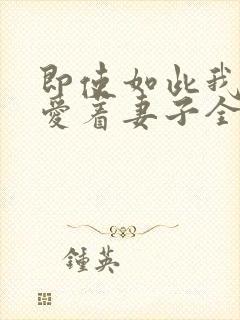 即使如此我
愛着妻子全
鍾英